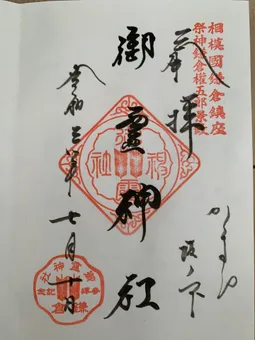 相模國鎌倉鎮座
祭神鎌倉權五郎景政
かまくら
坂ノ下
奉拝
御靈神社
令和三年七月十日
御靈神社
参拝記念
鎌倉